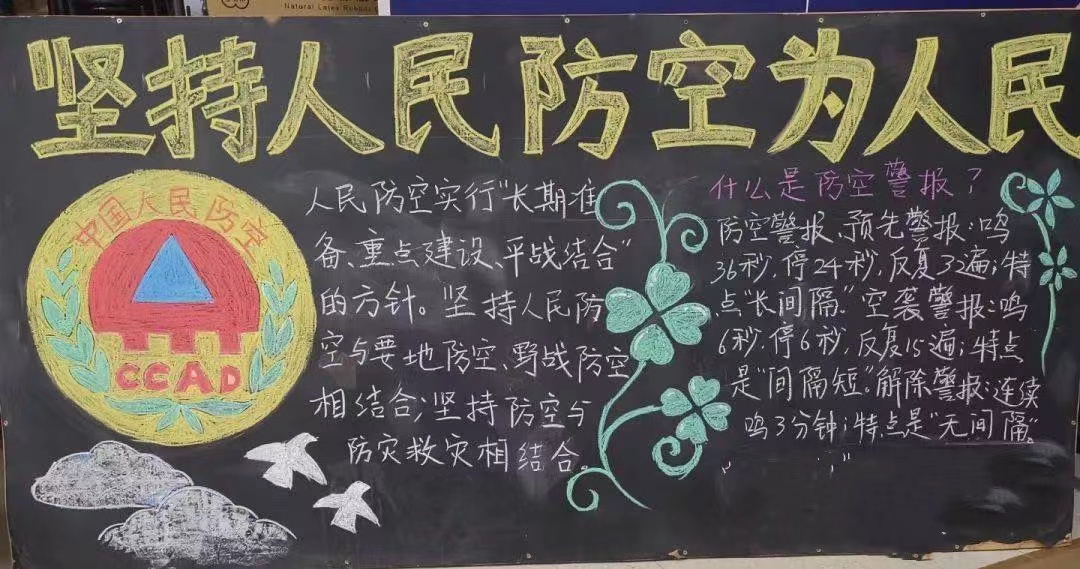 Natural Latex Rubber
坚持人民防空为人民
中国人民防空
CCAD
人民防空实行"长期准
备、重点建设、平战结合"
的方针。坚持人民防
空与要地防空、野战防空
相结合;坚持防空与
防灾救灾相结合。
什么是防空警报?
防空警报、预先警报:鸣
36秒,停24秒,反复3遍;特
点"长间隔."空袭警报:鸣
6秒.停6秒,反复15遍;特点
是"间隔短"解除警报:连续
鸣3分钟;特点是"无间隔"。